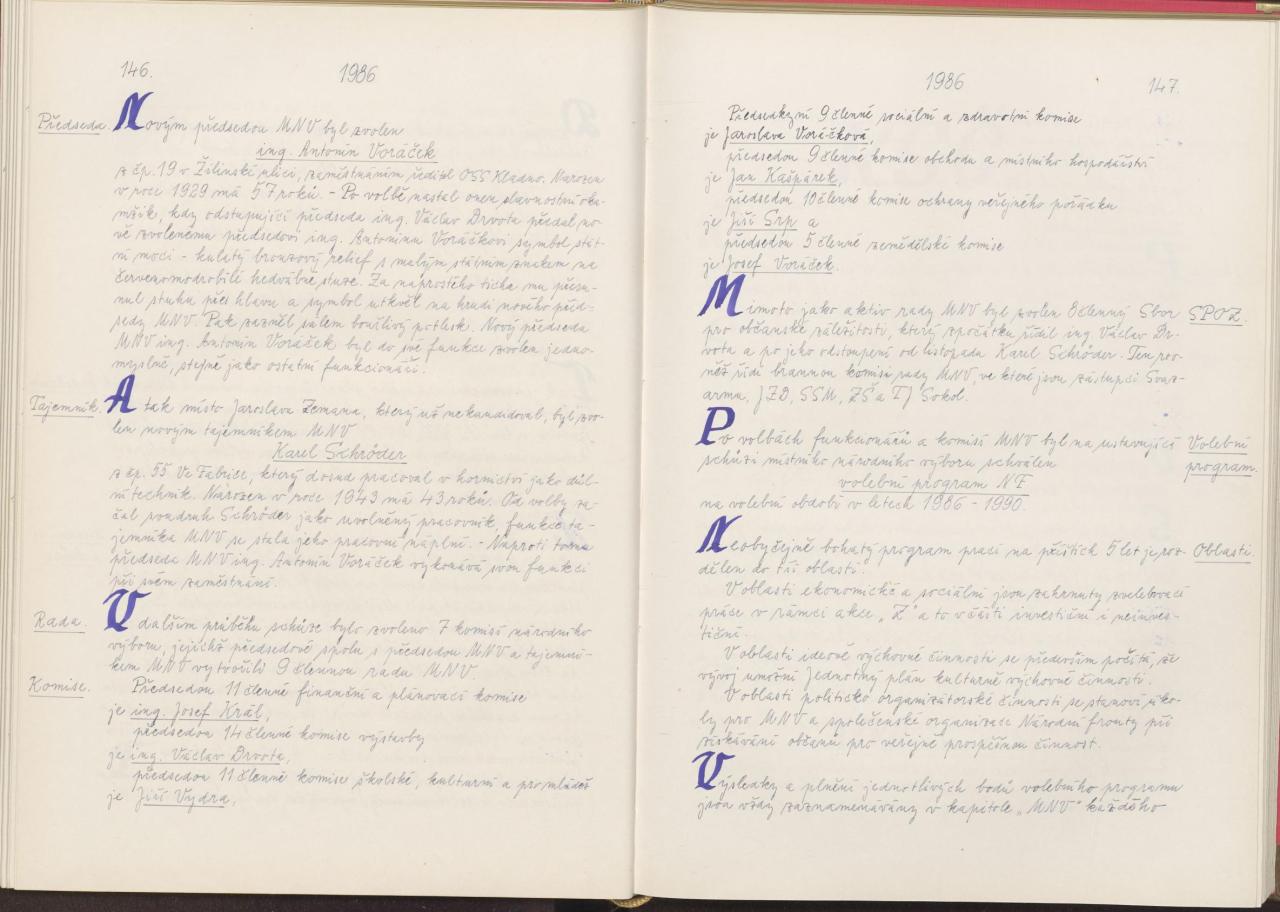 146.
1986
Předseda.
Novým předsedou MNV byl zvolen
ing. Antonín Voráček
z čp. 19 v Žilinské ulici, zaměstnáním ředitel OSS Kladno. Narozen
v roce 1929 má 57 roků. - Po volbě nastal onen slavnostní oka-
mžik, kdy odstupující předseda ing. Václav Drvota předal no-
vě zvolenému předsedovi ing. Antonínu Voráčkovi symbol stát-
ní moci - kulatý bronzový relief s malým státním znakem na
červenomodrobílé hedvábné stuze. Za naprostého ticha mu přesu-
nul stuhu přes hlavu a symbol utkvěl na hrudi nového před-
sedy MNV. Pak zazněl sálem bouřlivý potlesk. Nový předseda
MNV ing. Antonín Voráček byl do své funkce zvolen jedno-
myslně, stejně jako ostatní funkcionáři.
Tajemník.
A tak místo Jaroslava Zemana, který už nekandidoval, byl zvo-
len novým tajemníkem MNV
Karel Schröder
z čp. 55 Ve Fabrice, který dosud pracoval v hornictví jako důl-
ní technik. Narozen v roce 1943 má 43 roků. Od volby za-
čal soudruh Schröder jako uvolněný pracovník, funkce ta-
jemníka MNV se stala jeho pracovní náplní. - Naproti tomu
předseda MNV ing. Antonín Voráček vykonává svou funkci
při svém zaměstnání.
Rada.
V dalším průběhu schůze bylo zvoleno 7 komisí národního
výboru, jejichž předsedové spolu s předsedou MNV a tajemní-
kem MNV vytvořili 9 člennou radu MNV.
Komise.
Předsedou 11 členné finanční a plánovací komise
je ing. Josef Král,
předsedou 14 členné komise výstavby
je ing. Václav Drvota,
předsedou 11 členné komise školské, kulturní a pro mládež
je Jiří Vydra,
1986
147.
Předsedkyní 9 členné sociální a zdravotní komise
je Jaroslava Voráčková,
předsedou 9 členné komise obchodu a místního hospodářství
je Jan Kašpárek,
předsedou 10 členné komise ochrany veřejného pořádku
je Jiří Srp a
předsedou 5 členné zemědělské komise
je Josef Voráček.
Mimoto jako aktiv rady MNV byl zvolen 8 členný Sbor
SPOZ.
pro občanské záležitosti, který zpočátku řídil ing. Václav Dr-
vota a po jeho odstoupení od listopadu Karel Schröder. Ten rov-
něž řídí brannou komisi rady MNV, ve které jsou zástupci Svaz-
armu, JZD, SSM, ZŠ a TJ Sokol.
Po volbách funkcionářů a komisí MNV byl na ustavující
Volební
schůzi místního národního výboru schválen
program.
volební program NF
na volební období v letech 1986 - 1990.
Neobyčejně bohatý program prací na příštích 5 let je roz-
Oblasti.
dělen do tří oblastí.
V oblasti ekonomické a sociální jsou zahrnuty zvelebovací
práce v rámci akce „Z" a to v části investiční i neinves-
tiční.
V oblasti ideově výchovné činnosti se především počítá, že
vývoj umožní Jednotný plán kulturně výchovné činnosti.
V oblasti politicko organizátorské činnosti se stanoví úko-
ly pro MNV a společenské organizace Národní fronty při
získávání občanů pro veřejně prospěšnou činnost.
Výsledky a plnění jednotlivých bodů volebního programu
jsou vždy zaznamenávány v kapitole „MNV" každého